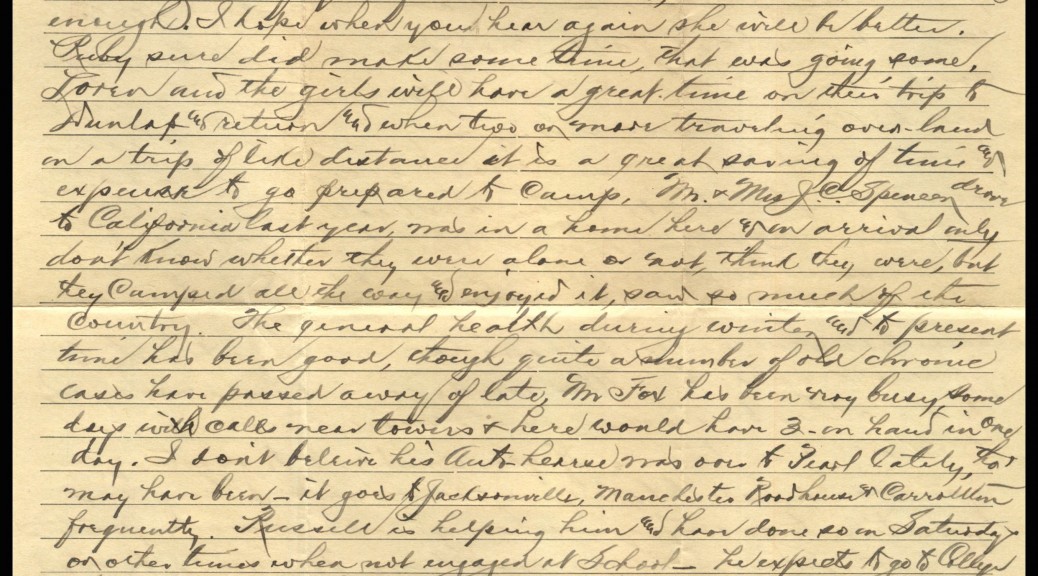 enough. I hope when you hear again she will be better.
Ruby sure did make some time, that was going some.
Loren and the girls will have a great time on their trip to
Dunlap and return and when two or more traveling over-land
on a trip of like distance it is a great saving of time and
expense to go prepared to Camp. Mr. & Mrs J. C. Spencer drove
to California last year, was in a home here on arrival only
don't know whether they were alone or not, think they were, but
they Camped all the way and enjoyed it, saw so much of the
Country. The general health during winter and to present
time has been good, though quite a number of old chronic
cases have passed away of late, Mr Fox has been very busy, some
days with calls near towns & here would have 3 - on hand in one
day. I don't beleive his Auto-hearse was over to Pearl lately, tho'
may have been - it goes to Jacksonville, Manchester Roodhouse & Carrollton
frequently. Russell is helping him and have done so on Saturdays
or other times when not engaged at School - he expects to go to College